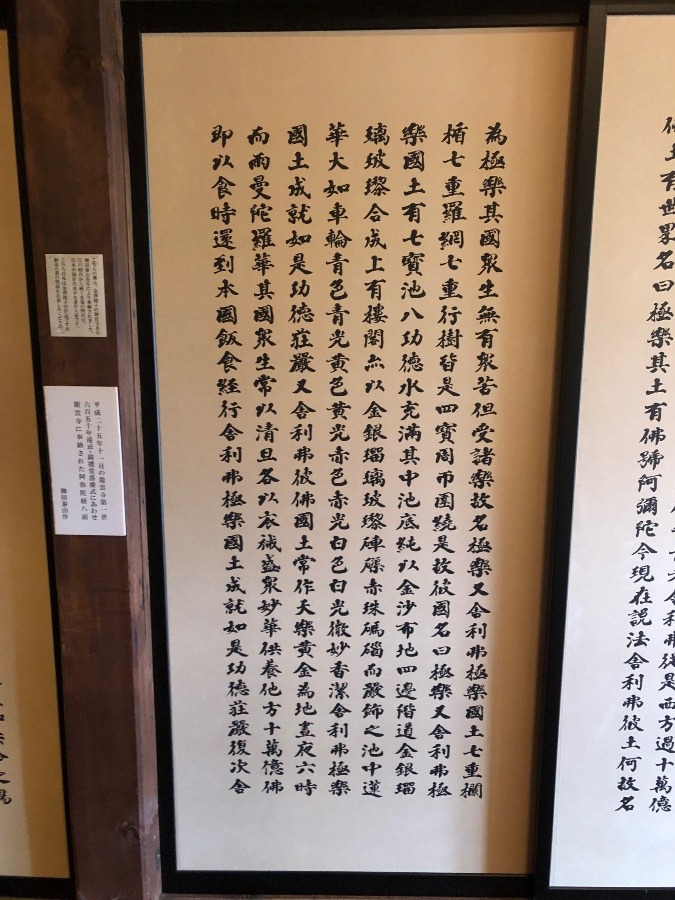 舍利弗從是西方過十萬億
土有世界名曰極樂其土有佛號阿彌陀今現在說法舍利弗彼土何故名
為極樂其國衆生無有衆苦但受諸樂故名極樂又舍利弗極樂國土七重欄
楯七重羅網七重行樹皆是四寶周帀圍繞是故彼國名曰極樂又舍利弗極
樂國土有七寶池八功德水充滿其中池底純以金沙布地四邊階道金銀瑠
璃玻瓈合成上有樓閣亦以金銀瑠璃玻瓈硨磲赤珠碼碯而嚴飾之池中蓮
華大如車輪青色青光黃色黃光赤色赤光白色白光微妙香潔舍利弗極樂
國土成就如是功德莊嚴又舍利弗彼佛國土常作天樂黃金為地晝夜六時
而雨曼陀羅華其國衆生常以清旦各以衣裓盛衆妙華供養他方十萬億佛
即以食時還到本國飯食經行舍利弗極樂國土成就如是功德莊嚴復次舍
平成二十五年十一月の龍雲寺第一世
六百五十年遠忌・堂落慶式にあわせ
龍雲寺に奉納された阿弥陀経八面
柳田泰山作